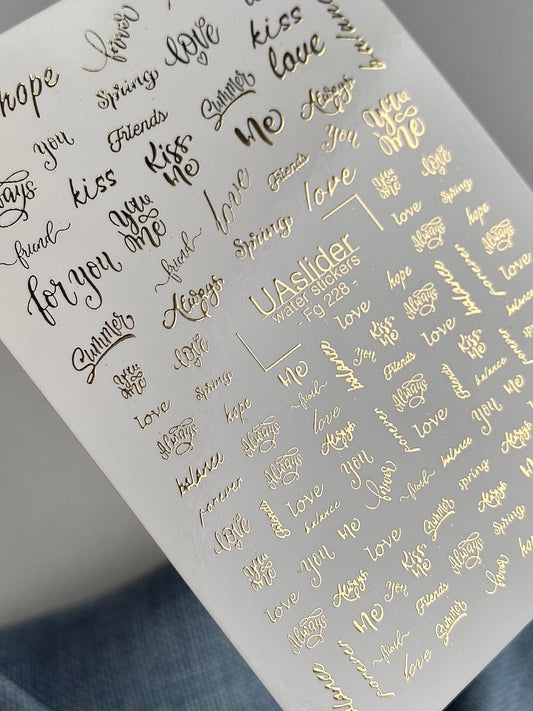 fover
love
kiss
love
hope
Spring
Summer
Always
You
Friends
Kiss
Me
Me
You
You
Me
Always
kiss
You
Me
love
Friends
love
friend
friend
Spring
for you
Always
UAslider
water stickers
- Fg 228 -
Summer
love
You
Me
Spring
Me
love
hope
Always
forever
love
love
Always
hope
Spring
love
Kiss
Me
love
balance
love
hope
friend
balance
You
Friends
Always
balance
Always
love
Always
forever
love
Friends
balance
Me
balance
Always
Always
You
forever
love
balance
You
Me
forever
Friends
love
balance
fover
friend
Spring
Always
love
Me
Summer
Spring
You
Me
You
love
Kiss
Me
Always
love
Always
You
Friends
fover
Always
Me
friend
Summer
forever
love